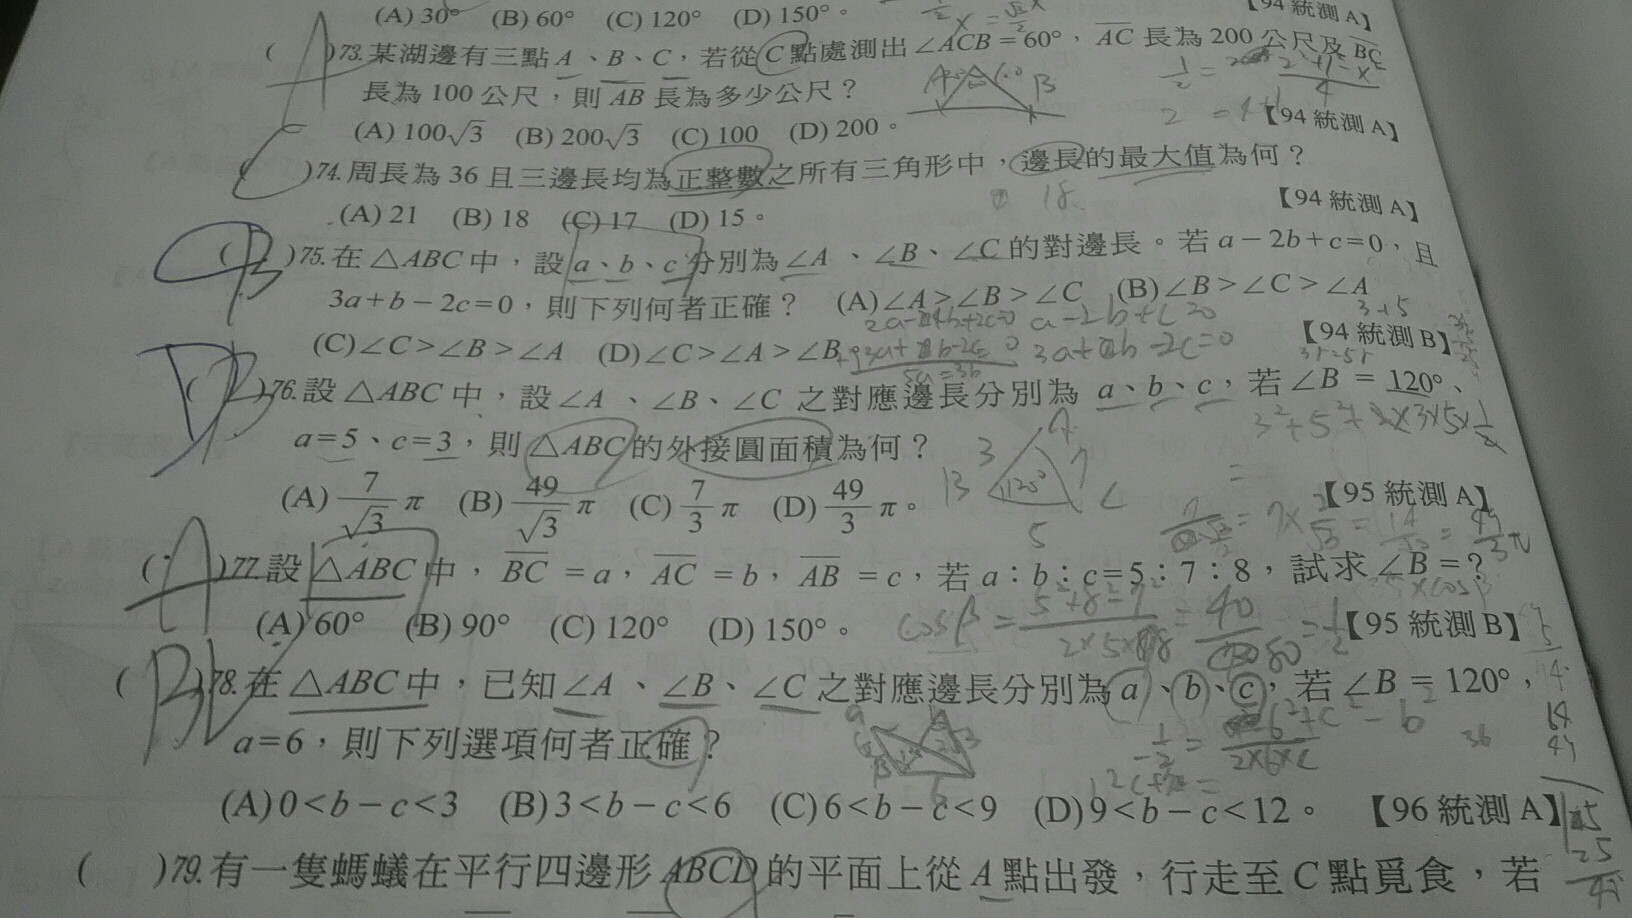 (A) 30° (B) 60° (C) 120° (D) 150°。
【94 統測 A】
( A )73.某湖邊有三點 A、B、C，若從 C 點處測出 ∠ACB = 60°，AC 長為 200 公尺及 BC
長為 100 公尺，則 AB 長為多少公尺？
(A) 100√3 (B) 200√3 (C) 100 (D) 200。
【94 統測 A】
( C )74.周長為 36 且三邊長均為正整數之所有三角形中，邊長的最大值為何？
18
(A) 21 (B) 18 (C) 17 (D) 15。
【94 統測 A】
( B )75.在 △ABC 中，設 a、b、c 分別為 ∠A、∠B、∠C 的對邊長。若 a − 2b + c = 0，且
3a + b − 2c = 0，則下列何者正確？ (A)∠A > ∠B > ∠C (B)∠B > ∠C > ∠A
a-2b+c=0
(C)∠C > ∠B > ∠A (D)∠C > ∠A > ∠B
【94 統測 B】
5a=3b
( D )76.設 △ABC 中，設 ∠A、∠B、∠C 之對應邊長分別為 a、b、c，若 ∠B = 120°、
a = 5、c = 3，則 △ABC 的外接圓面積為何？
3 A 7 B 120° C 5
(A) 7/√3 π (B) 49/√3 π (C) 7/3 π (D) 49/3 π。
【95 統測 A】
( A )77.設 △ABC 中，BC = a，AC = b，AB = c，若 a：b：c = 5：7：8，試求 ∠B = ?
(A) 60° (B) 90° (C) 120° (D) 150°。
【95 統測 B】
( B )78.在 △ABC 中，已知 ∠A、∠B、∠C 之對應邊長分別為 a、b、c，若 ∠B = 120°，
a = 6，則下列選項何者正確？
(A) 0 < b − c < 3 (B) 3 < b − c < 6 (C) 6 < b − c < 9 (D) 9 < b − c < 12。 【96 統測 A】
( )79.有一隻螞蟻在平行四邊形 ABCD 的平面上從 A 點出發，行走至 C 點覓食，若